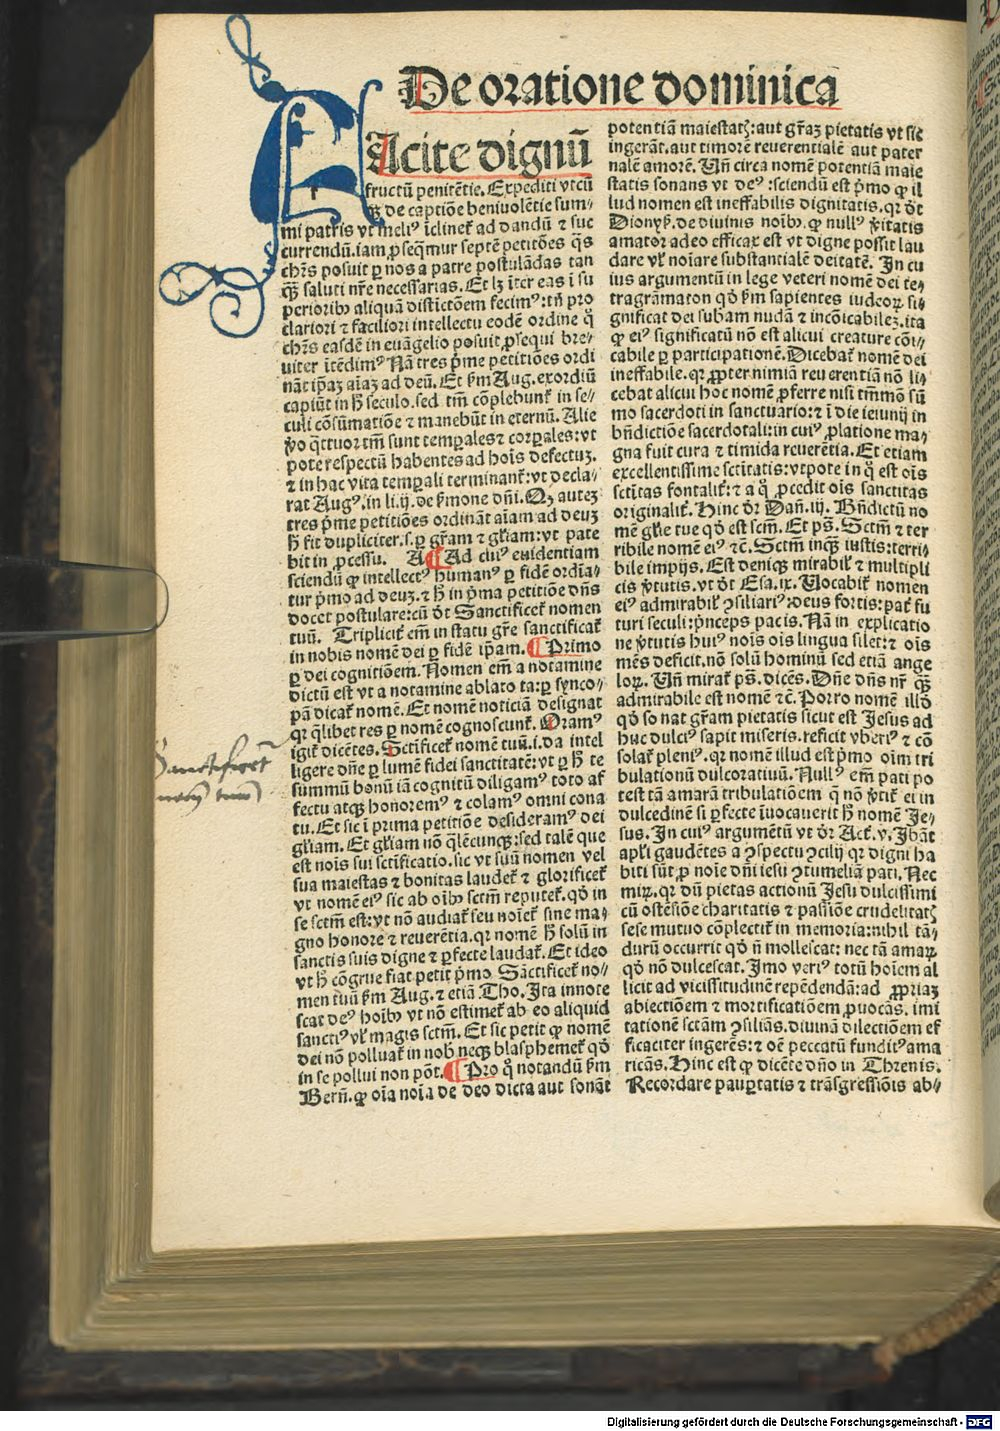 De oratione dominica
FAcite dignū
fructū penitētie. Expediti vt cū
qꝫ de captiōe beniuolētie sum⸗
mi patris vt meliꝰ īclinet̄ ad dandū ⁊ suc
currendū. iam ꝓseqmur septē petitōes q̄s
chr̄s posuit ꝑ nos a patre postulādas tan
qꝫ̄ saluti nr̄e necessarias. Et lꝫ īter eas ī su
perioribꝰ aliquā distictōem fecimꝰ: tn̄ pro
clariori ⁊ faciliori intellectu eodē ordine q̄
chr̄s easdē in euāgelio posuit ꝓsequi bre⸗
uiter ītēdimꝰ Nā tres p̄me petitiōes ordi
nāt ip̄aꝫ aīaꝫ ad deū. Et ẜm Aug. exordiū
capiūt in h̄ seculo. sed tm̄ cōplebunt̄ in se⸗
culi cōsūmatiōe ⁊ manebūt in eternū. Alie
ꝟo q̄ttuor tm̄ sunt temꝑales ⁊ corꝑales: vt
pote respectū habentes ad hoīs defectuꝫ.
⁊ in hac vita temꝑali terminant̄: vt decla⸗
rat Augꝰ. in li. ij. de ẜmone dn̄i. Qꝫ auteꝫ
tres p̄me petitiōes ordināt aīam ad deuꝫ
h̄ fit dupliciter. s. ꝑ gr̄am ⁊ gl̄iam: vt pate
bit in ꝓcessu. A ¶ Ad cuiꝰ euidentiam
sciendū ꝙ intellectꝰ humanꝰ ꝑ fidē ordīa⸗
tur p̄mo ad deuꝫ. ⁊ h̄ in p̄ma petitiōe dn̄s
docet postulare: cū d̄t Sanctificet̄ nomen
tuū. Triplicit̄ em̄ in statu gr̄e sanctificat̄
in nobis nomē dei ꝑ fidē ip̄am. ¶ Primo
ꝑ dei cognitiōem. Nomen em̄ a notamine
dictū est vt a notamine ablato ta: ꝑ synco⸗
pā dicat̄ nomē. Et nomē noticiā designat
qꝛ q̄libet res ꝑ nomē cognoscunt̄. Oramꝰ
igit̄ dicētes. Sctificet̄ nomē tuū. i. da intel
ligere dn̄e ꝑ lumē fidei sanctitatē: vt ꝑ h̄ te
summū bonū iā cognitū diligamꝰ toto af
fectu atqꝫ honoremꝰ ⁊ colamꝰ omni cona
tu. Et sic ī prima petitiōe desideramꝰ dei
gl̄iam. Et gl̄iam nō q̄lēcunqꝫ: sed talē que
est noīs sui sctīficatio. sic vt suū nomen vel
sua maiestas ⁊ bonitas laudet̄ ⁊ glorificet̄
vt nomē eiꝰ sic ab oībꝰ sctm̄ reputet̄. qd̄ in
se sctm̄ est: vt nō audiat̄ seu noīet̄ sine ma⸗
gno honore ⁊ reuerētia. qꝛ nomē h̄ solū in
sanctis suis digne ⁊ ꝑfecte laudat̄. Et ideo
vt h̄ cōgrue fiat petit p̄mo Sāctificet̄ no⸗
men tuū ẜm Aug. ⁊ etiā Tho. Ita innote
scat deꝰ hoībꝰ vt nō estimet̄ ab eo aliquid
sanctiꝰ vl̓ magis sctm̄. Et sic petit ꝙ nomē
dei nō polluat̄ in nob̄ neqꝫ blasphemet̄ qd̄
in se pollui non pōt. ¶ Pro q̄ notandū ẜm
Bern̄. ꝙ oīa noīa de deo dicta aut sonāt
potentiā maiestatꝭ: aut gr̄aꝫ pietatis vt sic
ingerāt. aut timorē reuerentialē aut pater
nalē amorē. Vn̄ circa nomē potentiā maie
statis sonans vt deꝰ: sciendū est p̄mo ꝙ il
lud nomen est ineffabilis dignitatis. qꝛ d̄t
Dionyẜ. de diuinis noībꝰ. ꝙ nullꝰ ꝟitatis
amator adeo efficax est vt digne possit lau
dare vl̓ noīare substantialē deitatē. In cu
ius argumentū in lege veteri nomē dei te⸗
tragrāmaton qd̄ ẜm sapientes iudeoꝝ si⸗
gnificat dei subam nudā ⁊ incōicabileꝫ. ita
ꝙ eiꝰ significatū nō est alicui creature cōi⸗
cabile ꝑ participationē. Dicebat̄ nomē dei
ineffabile. qꝛ ꝓpter nimiā reuerentiā nō li⸗
cebat alicui hoc nomē ꝓferre nisi tm̄mō sū
mo sacerdoti in sanctuario: ⁊ ī die ieiunij in
bn̄dictiōe sacerdotali: in cuiꝰ ꝓlatione ma⸗
gna fuit cura ⁊ timida reuerētia. Et etiam
excellentissime sctītatis: vtpote in q̄ est oīs
sctītas fontalit̄: ⁊ a q̄ ꝓcedit oīs sanctitas
originalit̄. Hinc d̄r Dan̄. iij. Bn̄dictū no
mē gl̄ie tue qd̄ est scm̄. Et ps̄. Sctm̄ ⁊ ter
ribile nomē eiꝰ ⁊c̄. Sctm̄ inqꝫ iustis: terri⸗
bile impijs. Est deniqꝫ mirabil̓ ⁊ multipli
cis ꝟtutis. vt d̄t Esa. ix. Vocabit̄ nomen
eiꝰ admirabil̓ ꝯsiliariꝰ: deus fortis: pat̄ fu
turi seculi: p̄nceps pacis. Nā in explicatio
ne ꝟtutis huiꝰ noīs oīs lingua silet: ⁊ oīs
mēs deficit. nō solū hominū sed etiā ange
loꝝ. Vn̄ mirat̄ ps̄. dicēs. Dn̄e dn̄s nr̄ qꝫ̄
admirabile est nomē ⁊c̄. Porro nomē illd̄
qd̄ sonat gr̄am pietatis sicut est Jesus ad
huc dulciꝰ sapit miseris. reficit vberiꝰ ⁊ cō
solat̄ pleniꝰ. qꝛ nomē illud est p̄mo oīm tri
bulationū dulcoratiuū. Nullꝰ em̄ pati po
test tā amarā tribulatiōem q̄ nō ꝟtit̄ ei in
dulcedinē si ꝑfecte īuocauerit h̄ nomē Je⸗
sus. In cuiꝰ argumētū vt d̄r Act̄. v. Jbāt
apl̄i gaudētes a ꝯspectu ꝯcilij qꝛ digni ha
biti sūt ꝓ noīe dn̄i iesu ꝯtumeliā pati. Nec
miꝝ. qꝛ dū pietas actionū Jesu dulcissimi
cū ostēsiōe charitatis ⁊ passiōe crudelitatꝭ
sese mutuo cōplectit̄ in memoria: nihil tā⸗
durū occurrit qd̄ n̄ mollescat: nec tā amaꝝ
qd̄ nō dulcescat. Imo veriꝰ totū hoīem al
licit ad vicissitudinē repēdendā: ad ꝓpriaꝫ
abiectiōem ⁊ mortificatiōem ꝓuocās. imi
tationē sctām ꝯsiliās. diuinā dilectiōem ef
ficaciter ingerēs: ⁊ oē peccatū funditꝰ ama
ricās. Hinc est ꝙ dicēte dn̄o in Threnis.
Recordare pauꝑtatis ⁊ trāsgressiōis ab⸗
Sanctificet̄
nomen tuum
Digitalisierung gefördert durch die Deutsche Forschungsgemeinschaft - DFG